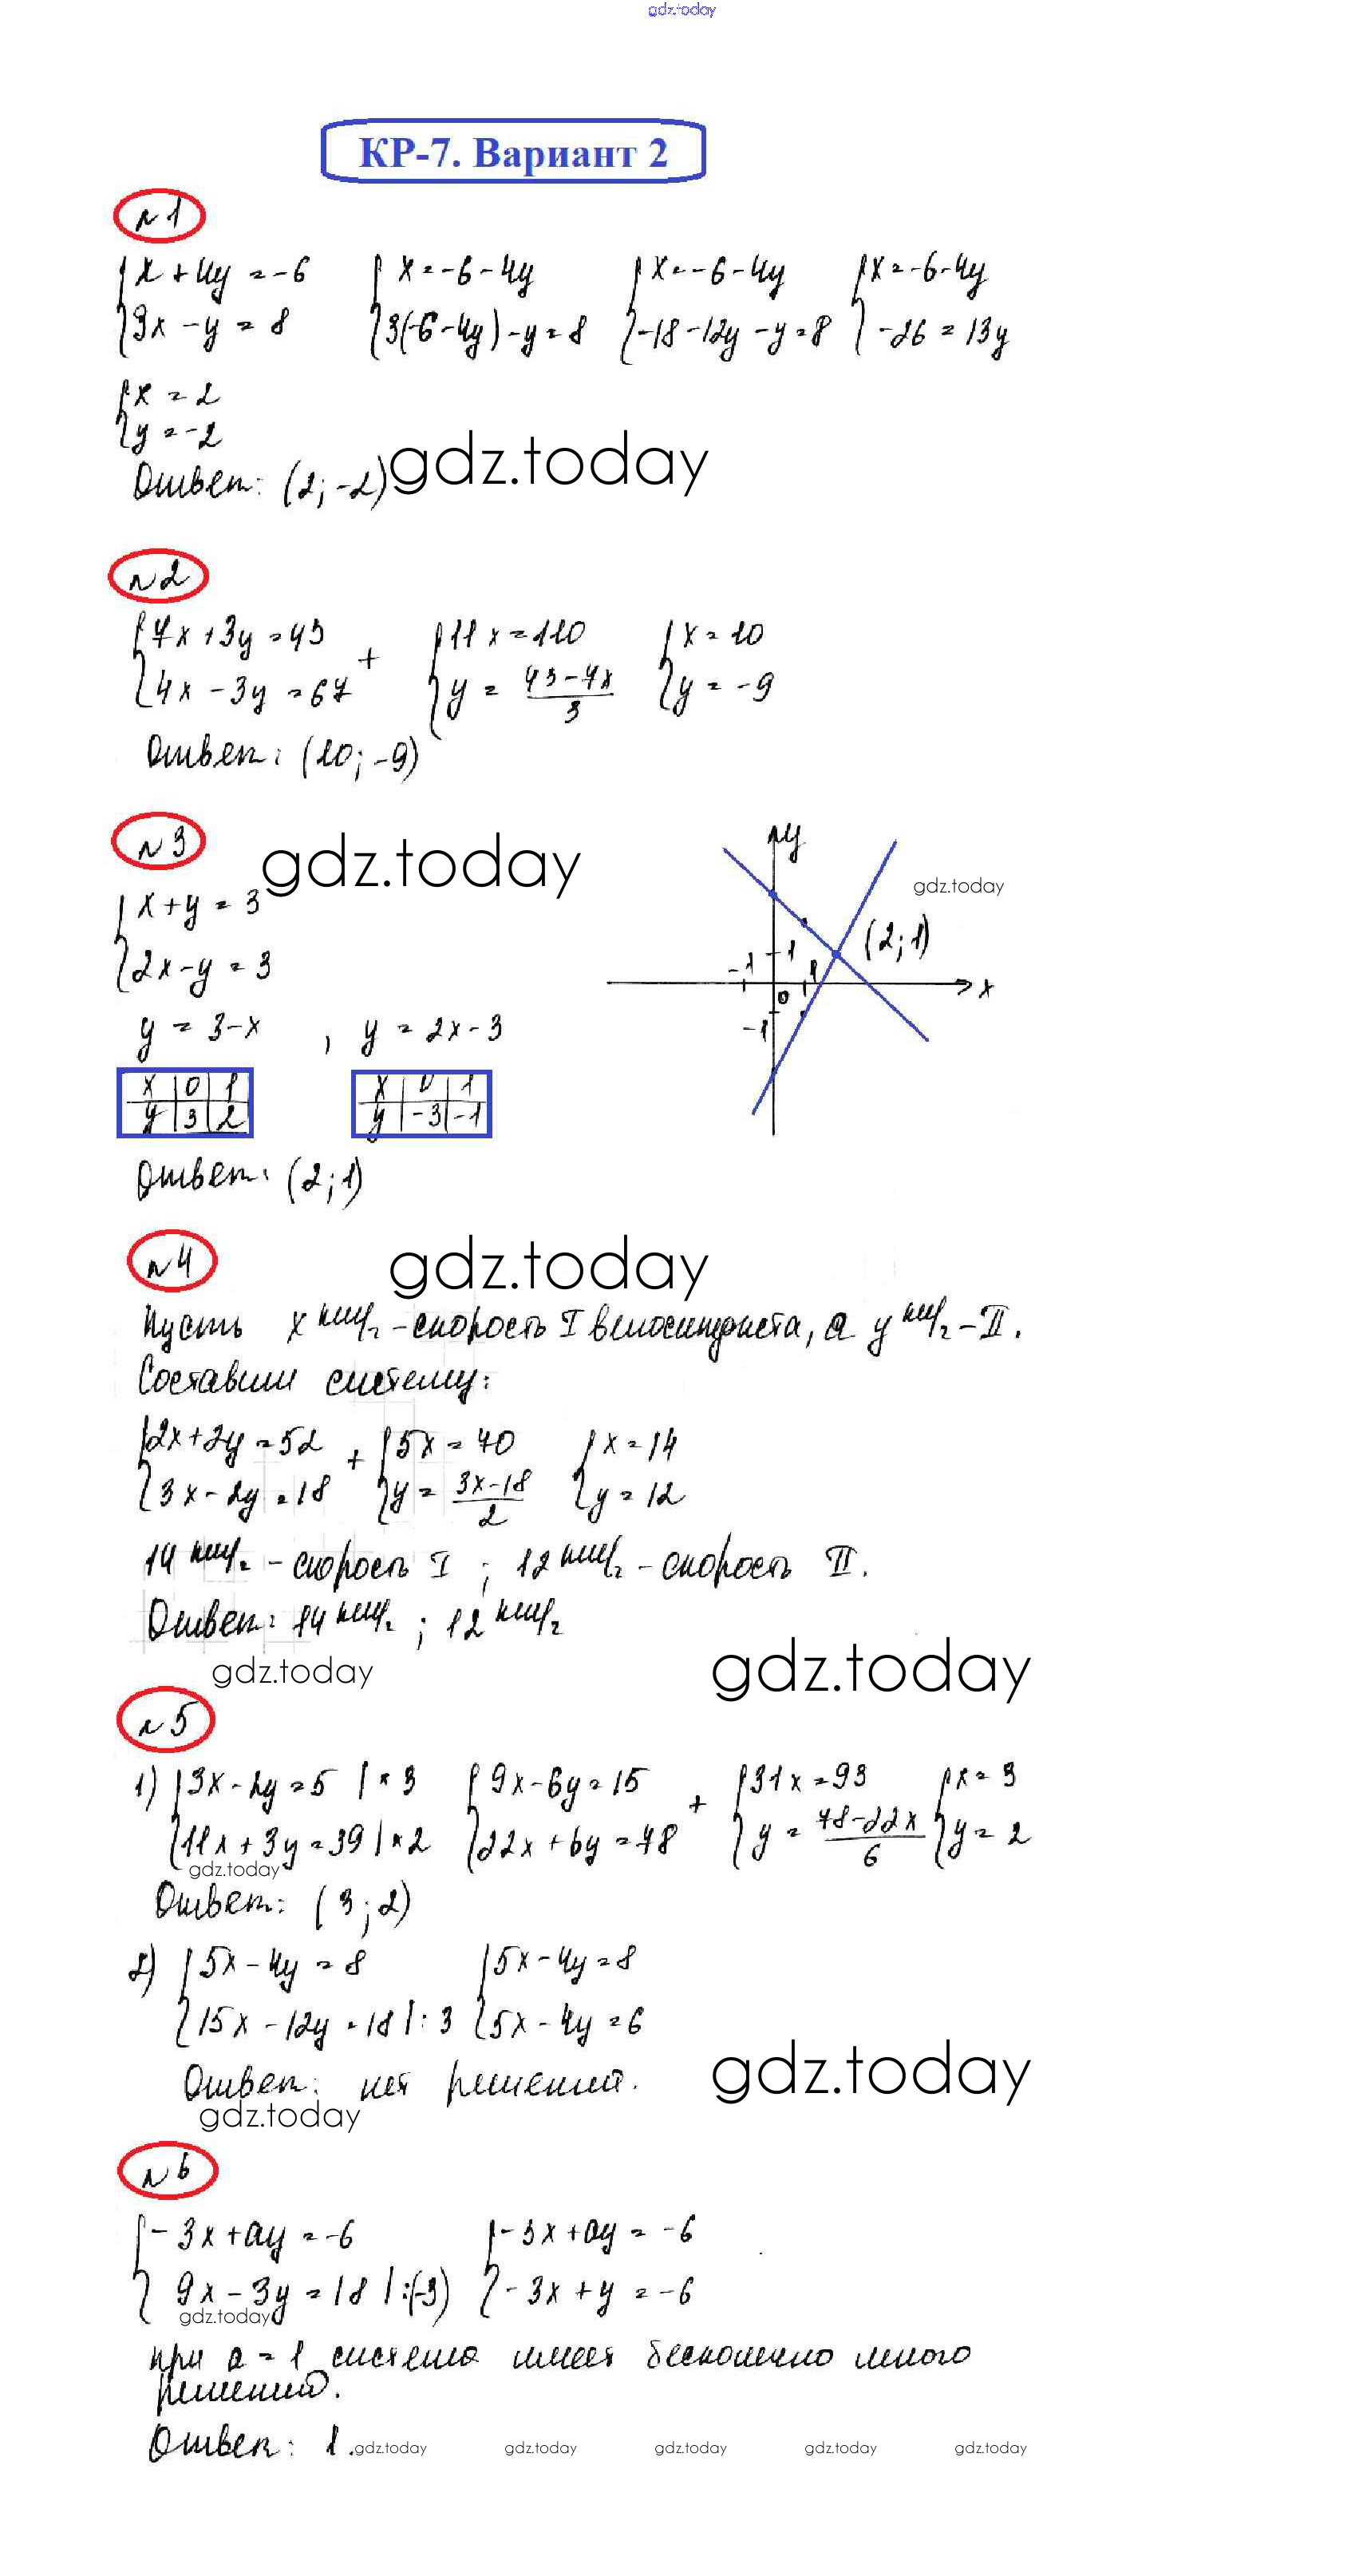 gdz.today
КР-7. Вариант 2
№1
{x + 4y = -6 {x = -6 - 4y {x = -6 - 4y {x = -6 - 4y
{3x - y = 8 {3(-6 - 4y) - y = 8 {-18 - 12y - y = 8 {-26 = 13y
{x = 2
{y = -2
Ответ: (2; -2)
gdz.today
№2
{7x + 3y = 43 + {11x = 110 {x = 10
{4x - 3y = 67 {y = (43 - 7x)/3 {y = -9
Ответ: (10; -9)
№3
gdz.today
{x + y = 3
{2x - y = 3
y = 3 - x , y = 2x - 3
x | 0 | 1 x | 0 | 1
y | 3 | 2 y | -3 | -1
Ответ: (2; 1)
y
gdz.today
(2; 1)
-1 1 1
0 x
-1
№4
gdz.today
Пусть x км/ч - скорость I велосипедиста, а y км/ч - II.
Составим систему:
{2x + 2y = 52 + {5x = 70 {x = 14
{3x - 2y = 18 {y = (3x - 18)/2 {y = 12
14 км/ч - скорость I ; 12 км/ч - скорость II.
Ответ: 14 км/ч ; 12 км/ч
gdz.today gdz.today
№5
1) {3x - 2y = 5 | * 3 {9x - 6y = 15 + {31x = 93 {x = 3
{11x + 3y = 39 | * 2 {22x + 6y = 78 {y = (78 - 22x)/6 {y = 2
gdz.today
Ответ: (3; 2)
2) {5x - 4y = 8 {5x - 4y = 8
{15x - 12y = 18 | : 3 {5x - 4y = 6
Ответ: нет решений.
gdz.today
gdz.today
№6
{-3x + ay = -6 {-3x + ay = -6
{9x - 3y = 18 | :(-3) {-3x + y = -6
gdz.today
при a = 1 система имеет бесконечно много
решений.
Ответ: 1.
gdz.today gdz.today gdz.today gdz.today gdz.today